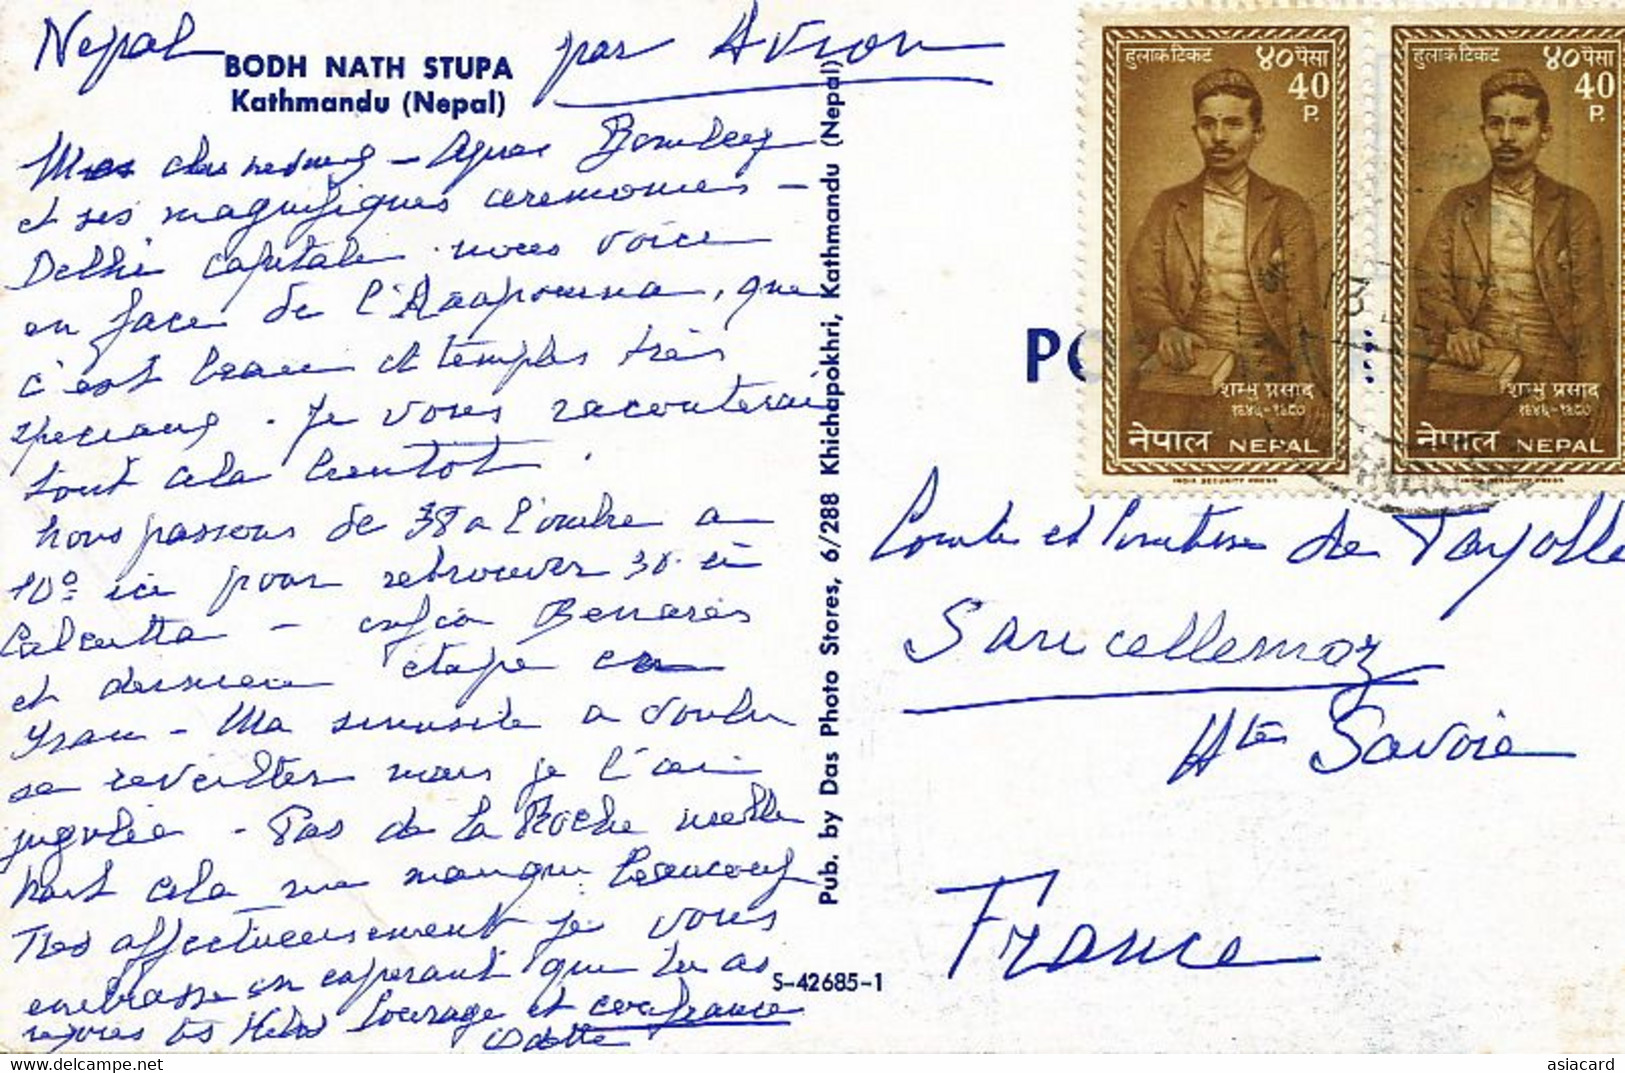 Nepal
par Avion
BODH NATH STUPA
Kathmandu (Nepal)
Bombay
et ses magnifiques ceremonies -
Delhi capitale nous voici
en face de l' que
c'est beau et temples très
speciaux. Je vous raconterai
tout cela bientot.
Nous passons de 38 a l'ombre a
10° ici pour retrouver 30 à
Calcutta - enfin Benares
et derniere étape en
Iran - Ma sinusite a voulu
se reveiller mais je l'ai
jugulée - Pas de la Roche
hors cela me manque beaucoup
Tres affectueusement je vous
embrasse en esperant que tu as
Courage et confiance
Odette
Pub. by Das Photo Stores, 6/288 Khichapokhri, Kathmandu (Nepal)
S-42685-1
PO
हुलाक टिकट ४० पैसा
40
P.
शम्भु प्रसाद
१९४६-१९८७
नेपाल NEPAL
INDIA SECURITY PRESS
हुलाक टिकट ४० पैसा
40
P.
शम्भु प्रसाद
१९४६-१९८७
नेपाल NEPAL
INDIA SECURITY PRESS
Comte et Comtesse de
Sancellemoz
Hte Savoie
France
asiacard